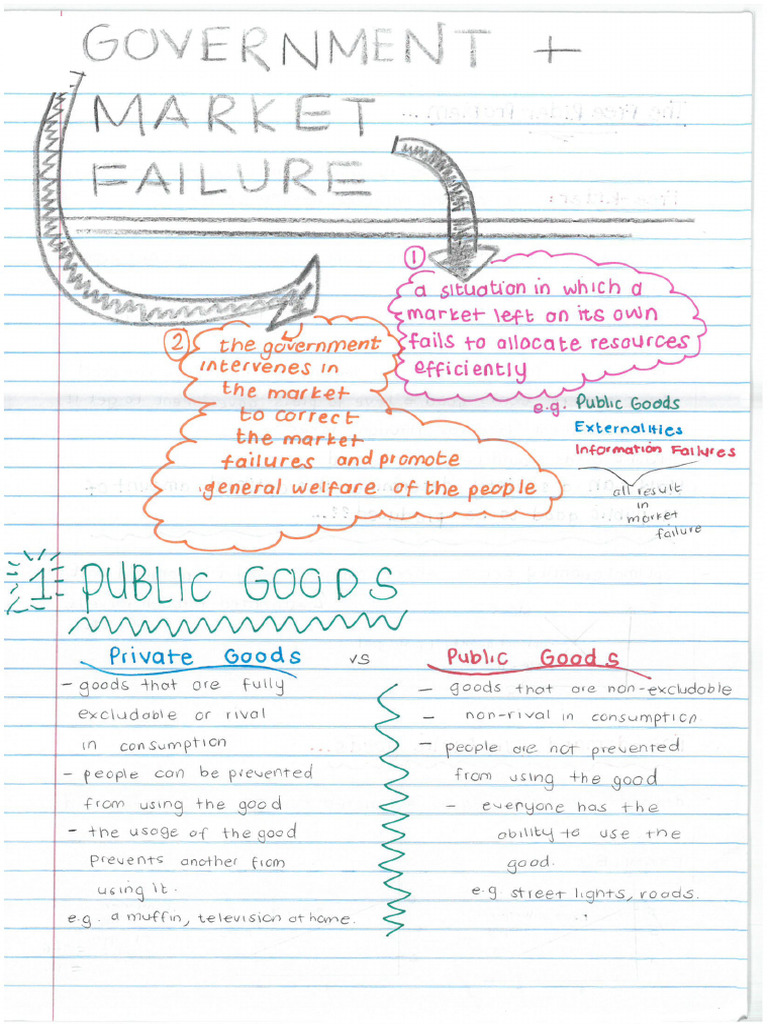 GOVERNMENT +
MARKET
FAILURE
①
a situation in which a
market left on its own
fails to allocate resources
efficiently
e.g. Public Goods
Externalities
Information Failures
all result
in
market
failure
②
the government
intervenes in
the market
to correct
the market
failures and promote
general welfare of the people
1 PUBLIC GOODS
Private Goods vs Public Goods
- goods that are fully
excludable or rival
in consumption
- people can be prevented
from using the good
- the usage of the good
prevents another from
using it.
e.g. a muffin, television at home.
- goods that are non-excludable
- non-rival in consumption
- people are not prevented
from using the good
- everyone has the
ability to use the
good.
e.g. street lights, roads.